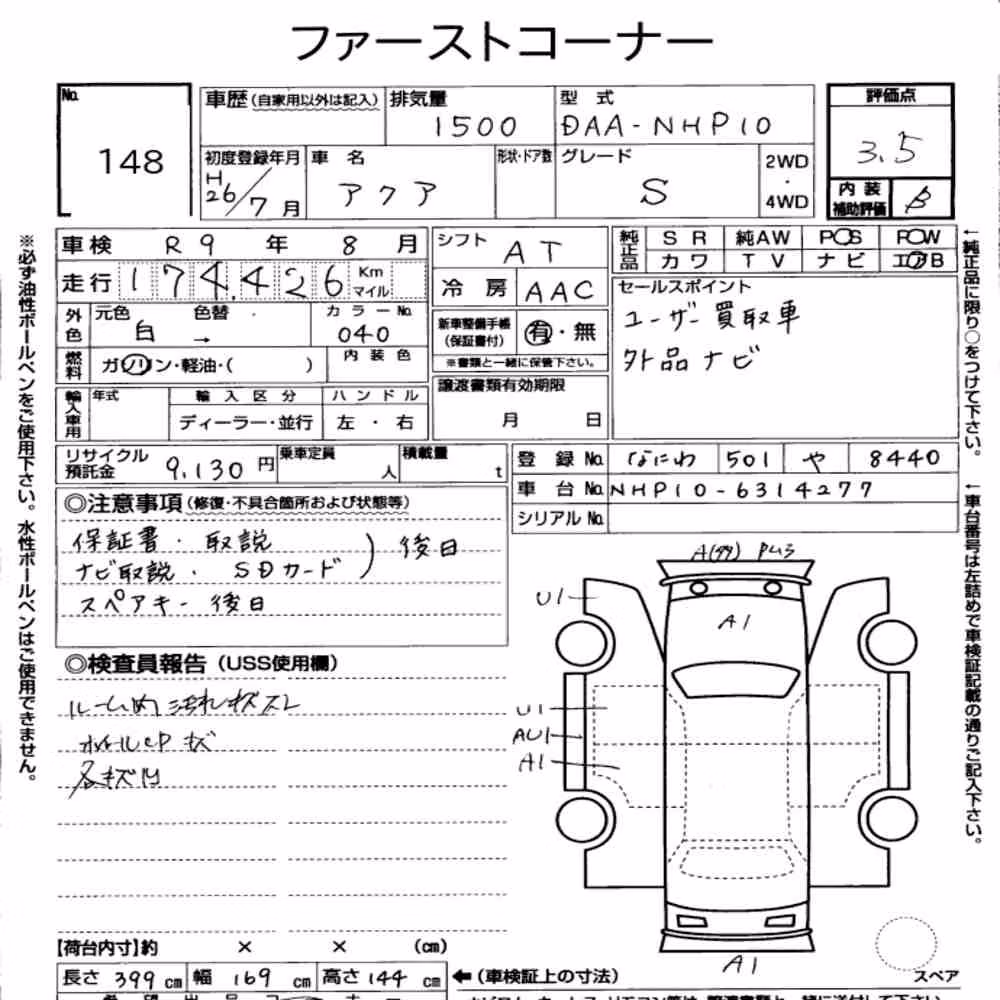 ファーストコーナー
No. 148
車歴(自家用以外は記入) 排気量 1500 型式 DAA-NHP10 評価点 3.5
初度登録年月 H26/7月 車名 アクア 形状・ドア数 グレード S 2WD・4WD 内装補助評価 B
車検 R9年8月 シフト AT 純正品 SR 純AW PS PW
走行 174,426 Km マイル 冷房 AAC カワ TV ナビ エアB
外色 元色 白 色替 → カラーNo. 040 新車整備手帳(保証書付) 有・無 ※書類と一緒に保管下さい。
セールスポイント
ユーザー買取車
外品ナビ
燃料 ガソリン・軽油・( ) 内装色
譲渡書類有効期限 月 日
輸入車用 年式 輸入区分 ディーラー・並行 ハンドル 左・右
リサイクル預託金 9,130円 乗車定員 人 積載量 t
登録No. なにわ 501 や 8440
車台No. NHP10-6314277
シリアルNo.
◎注意事項(修復・不具合箇所および状態等)
保証書・取説
ナビ取説・SDカード )後日
スペアキー後日
◎検査員報告(USS使用欄)
A1
U1
A1
U1
AU1
A1
A1
スペア
【荷台内寸】約 × × (cm)
長さ 399cm 幅 169cm 高さ 144cm ←(車検証上の寸法)
※必ず油性ボールペンをご使用下さい。水性ボールペンはご使用できません。
←純正品に限り○をつけて下さい。
←車台番号は左詰めで車検証記載の通りご記入下さい。